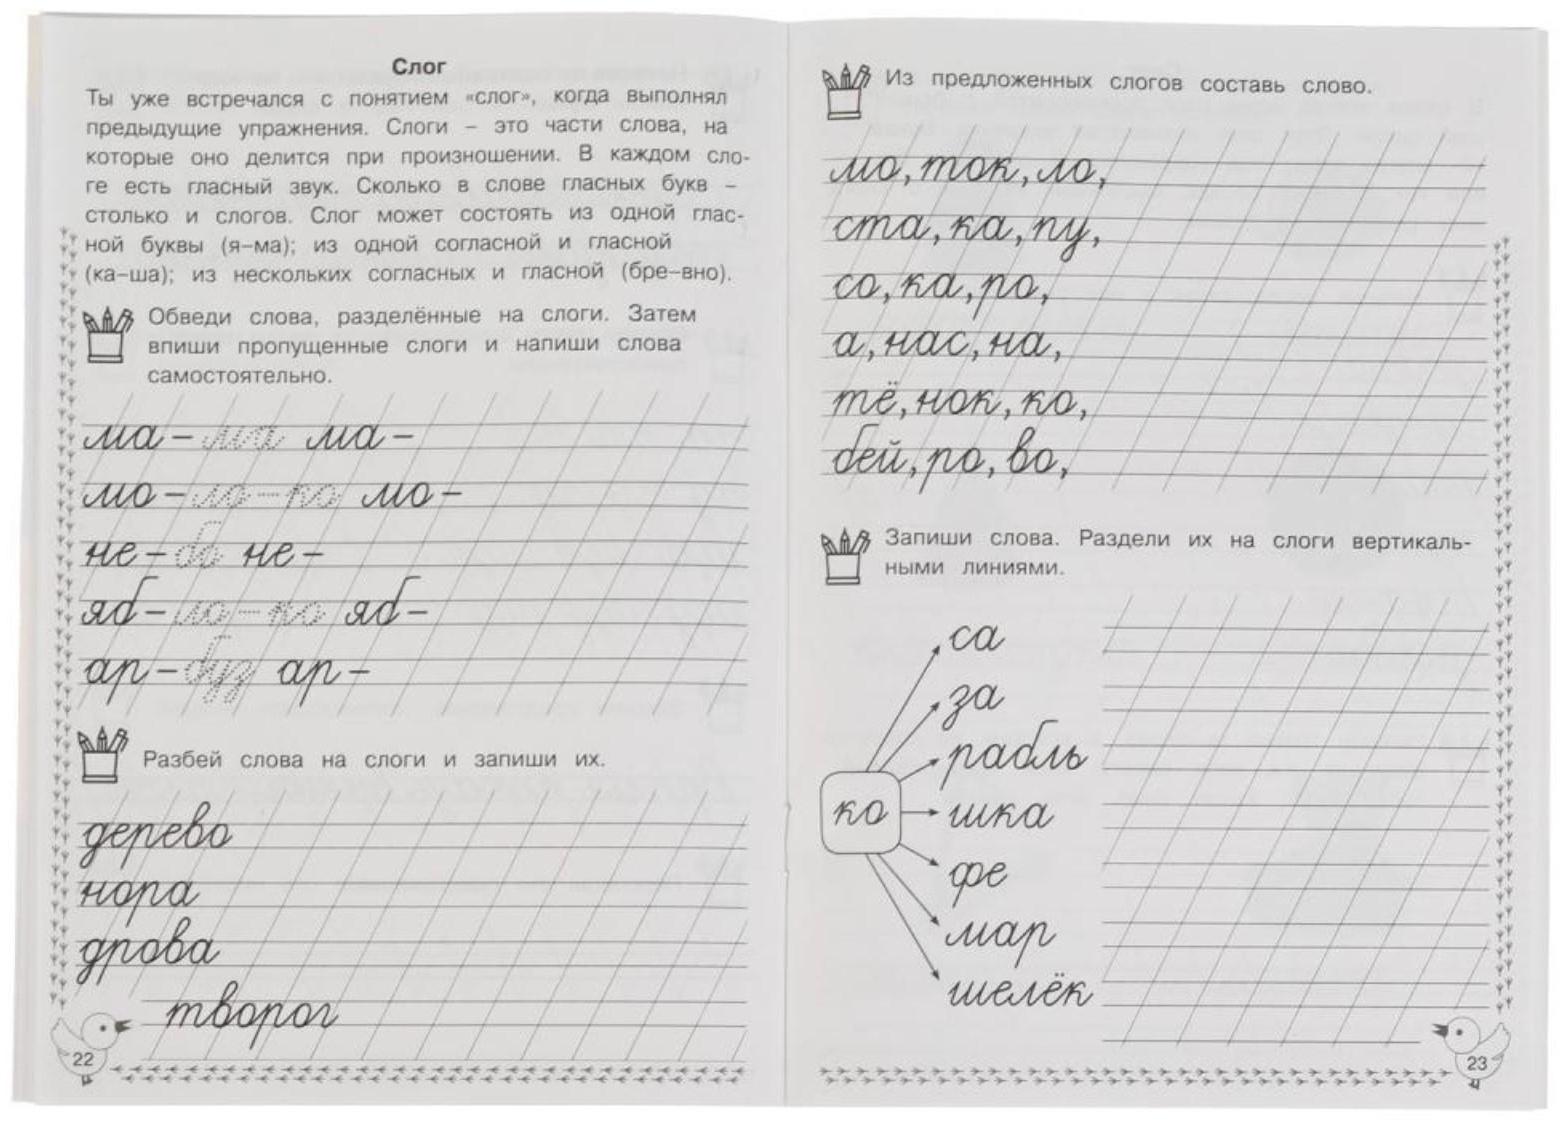 Слог
Ты уже встречался с понятием «слог», когда выполнял
предыдущие упражнения. Слоги – это части слова, на
которые оно делится при произношении. В каждом сло-
ге есть гласный звук. Сколько в слове гласных букв –
столько и слогов. Слог может состоять из одной глас-
ной буквы (я–ма); из одной согласной и гласной
(ка–ша); из нескольких согласных и гласной (бре–вно).
Обведи слова, разделённые на слоги. Затем
впиши пропущенные слоги и напиши слова
самостоятельно.
ма – ма ма –
мо – ло – ко мо –
не – бо не –
яб – ло – ко яб –
ар – буз ар –
Разбей слова на слоги и запиши их.
дерево
нора
дрова
творог
22
Из предложенных слогов составь слово.
мо, ток, ло,
ста, ка, пу,
со, ка, ро,
а, нас, на,
тё, нок, ко,
бей, ро, во,
Запиши слова. Раздели их на слоги вертикаль-
ными линиями.
са
за
рабль
ко
шка
фе
мар
шелёк
23